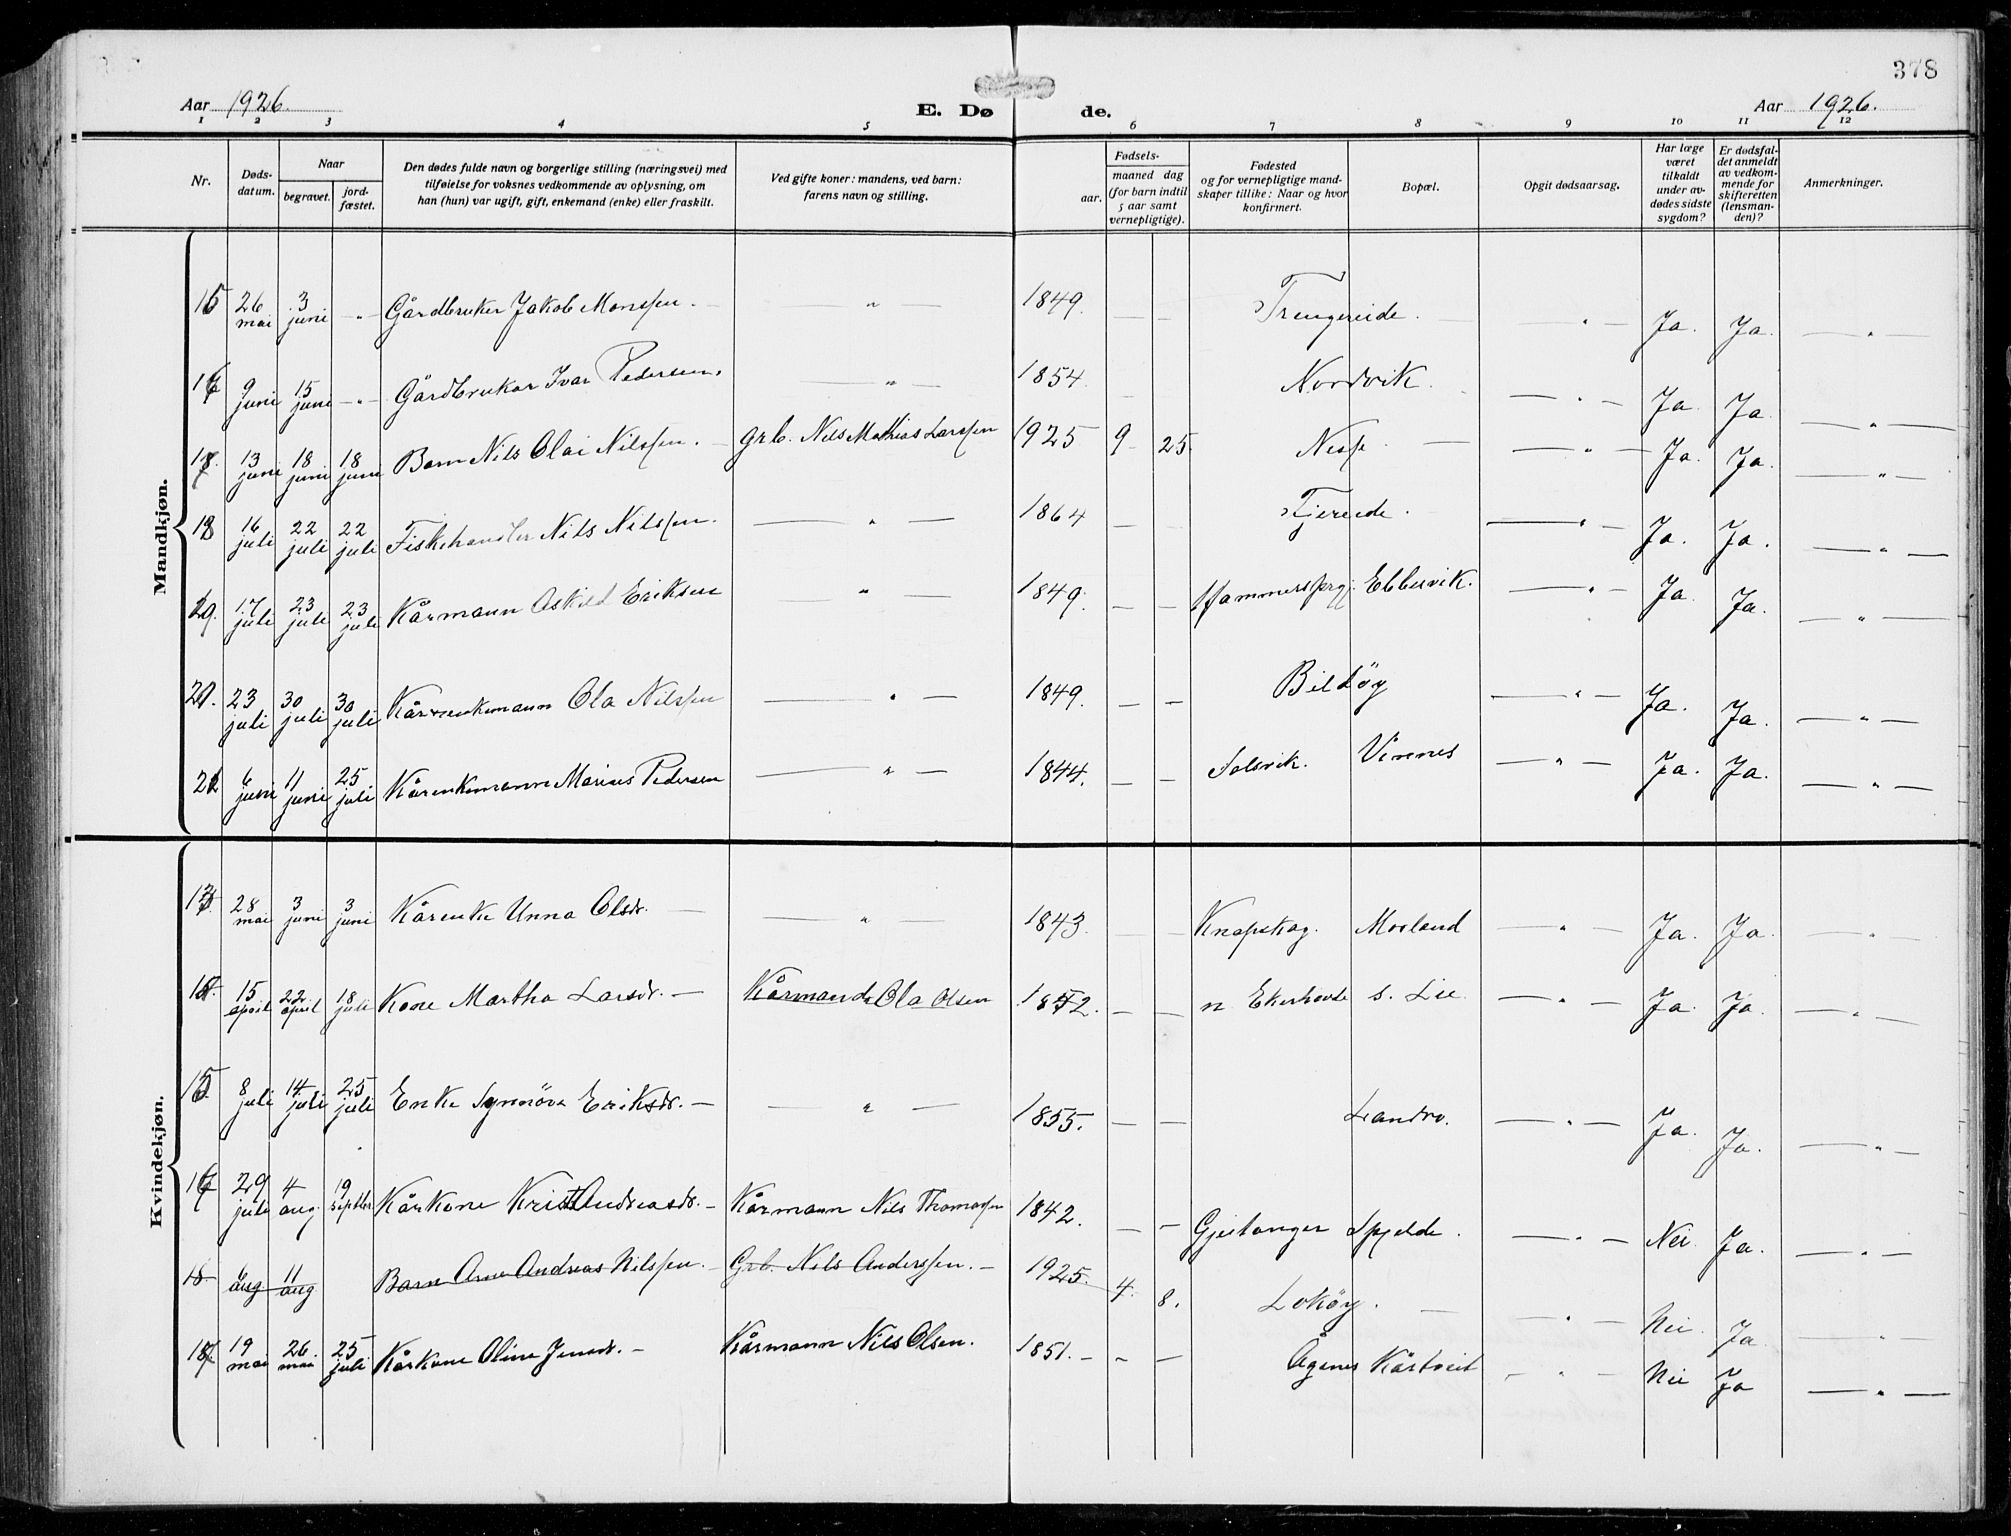 378
Aar 1926. E. Dø de. Aar 1926.
1 2 3 4 5 6 7 8 9 10 11 12
Nr. Døds-datum. Naar begravet. jord-fæstet. Den dødes fulde navn og borgerlige stilling (næringsvei) med tilføielse for voksnes vedkommende av oplysning, om han (hun) var ugift, gift, enkemand (enke) eller fraskilt. Ved gifte koner: mandens, ved barn: farens navn og stilling. Fødsels- aar. maaned dag (for barn indtil 5 aar samt vernepligtige). Fødested og for vernepligtige mand-skaper tillike: Naar og hvor konfirmert. Bopæl. Opgit dødsaarsag. Har læge været tilkaldt under av-dødes sidste sygdom? Er dødsfal-det anmeldt av vedkom-mende for skifteretten (lensman-den)? Anmerkninger.
Mandkjøn.
15 26 mai 3 juni - " - Gårdbruker Jakob Monssen. — " — 1849. — — Trengereide. — — " — Ja. Ja. — " —
16 9 juni 15 juni - " - Gårdbruker Ivar Pedersen. — " — 1854 — Nordvik. — " — Ja. Ja. — " —
17. 13 juni 18 juni 18 juni Barn Nils Olai Nilssen. — Grb. Nils Mathias Larssen 1925 9 25. Nesse — — " — Ja. Ja. — " —
18 16 juli 22 juli 22 juli Fiskehandler Nils Nilssen. — " — 1864 — — Tjereide. — " — Ja. Ja. — " —
19. 17 juli 23 juli 23 juli Kårmann Askild Eriksen — " — 1849. — — Hammerspgj. Ebbesvik. — " — Ja. Ja. — " —
20. 23 juli 30 juli 30 juli Kårenkemann Ola Nilssen — " — 1849. — — Bildöy — " — Ja. Ja. — " —
21 6 juni 11 juni 25 juli Kårenkemann Marius Pedersen — " — 1844. — — Solsvik. Vinnes — " — Ja. Ja. — " —
Kvindekjøn.
13. 28 mai 3 juni 3 juni Kårenke Unna Olsdr. — — " — 1843. — — Knapskog. Morland — " — Ja. Ja. — " —
14. 15 april 22 april 18 juli Kone Martha Larsdr. — Kårmand Ola Olsen 1852. — — n. Ekerhovde s. Lie — " — Ja. Ja. — " —
15. 8 juli 14 juli 25 juli Enke Synnöve Eriksdr. — — " — 1855. — — Landro. — " — Ja. Ja. — " —
16 29 juli 4 aug. 19 septbr. Kårkone Krist Andreasdr. — Kårmann Nils Thomassen 1842. — — Gjeitanger Spjelde. — " — Nei. Ja. — " —
18 6 aug. 11 aug Barn Arne Andreas Nilssen. — Grb. Nils Anderssen. — 1925. 4. 8. Loköy. — — " — Nei. Ja. — " —
17 19 mai 26 mai 25 juli Kårkone Oline Jensdr. — Kårmann Nils Olsen. 1851. — — — Ågenes Kårtveit — " — Nei Ja — " —